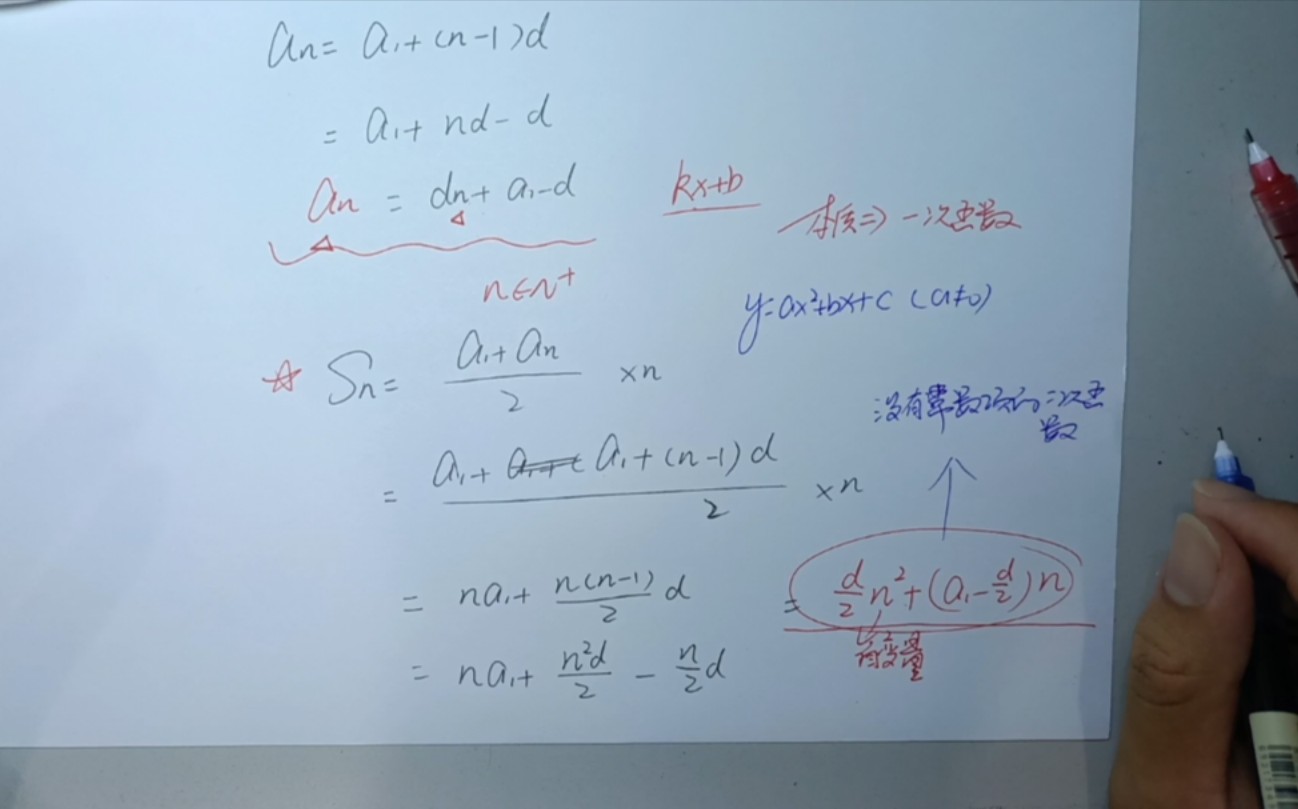 an = a₁+(n-1)d
= a₁+ nd- d
an = dn+ a₁-d
kx+b
本质⇒一次函数
n∈N⁺
y=ax²+bx+c (a≠0)
☆ Sn= (a₁+an)/2 ×n
没有常数项的二次函
数
= (a₁+ a₁+(n-1)d)/2 ×n
= na₁+ n(n-1)/2 d
= d/2 n²+(a₁-d/2)n
自变量
= na₁+ n²d/2 - n/2 d